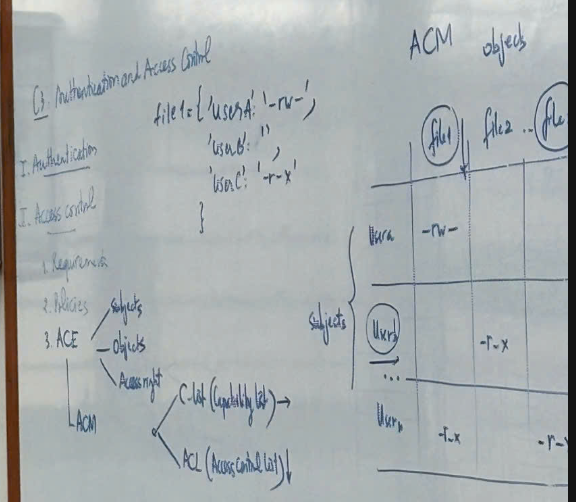 C3: Authentication and Access Control
I. Authentication
I. Access control
1. Requirement
2. Policies
3. ACE
Subjects
Objects
Access right
ACM
C-list (Capability list) →
ACL (Access Control List) ↓
file1 = { 'userA': '-rw-',
'userB': '',
'userC': '-r-x'
}
ACM objects
file1 file2 .. file
Subjects
Usera -rw-
Userb -r-x
...
Usern -r-x -r-x